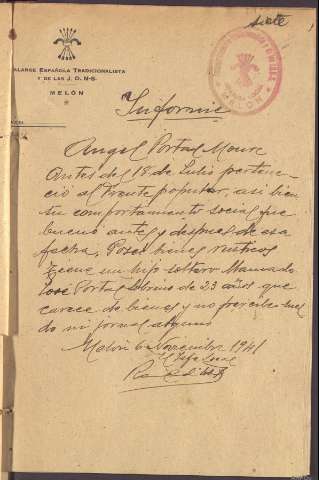 siete
FALANGE ESPAÑOLA TRADICIONALISTA
Y DE LAS J. O. N-S.
MELÓN
Informe
Angel Portal Moure
Antes del 18 de Julio pertene-
ció al Frente popular, asi bien
tu comportamiento social fue
bueno antes y despues de esa
fecha, Posee bienes rusticos
tiene un hijo soltero llamado
José Portal Sobrino de 23 años que
carece de bienes y no percibe suel
do ni jornal alguno
Melón 6 Noviembre 1941
El Jefe Local